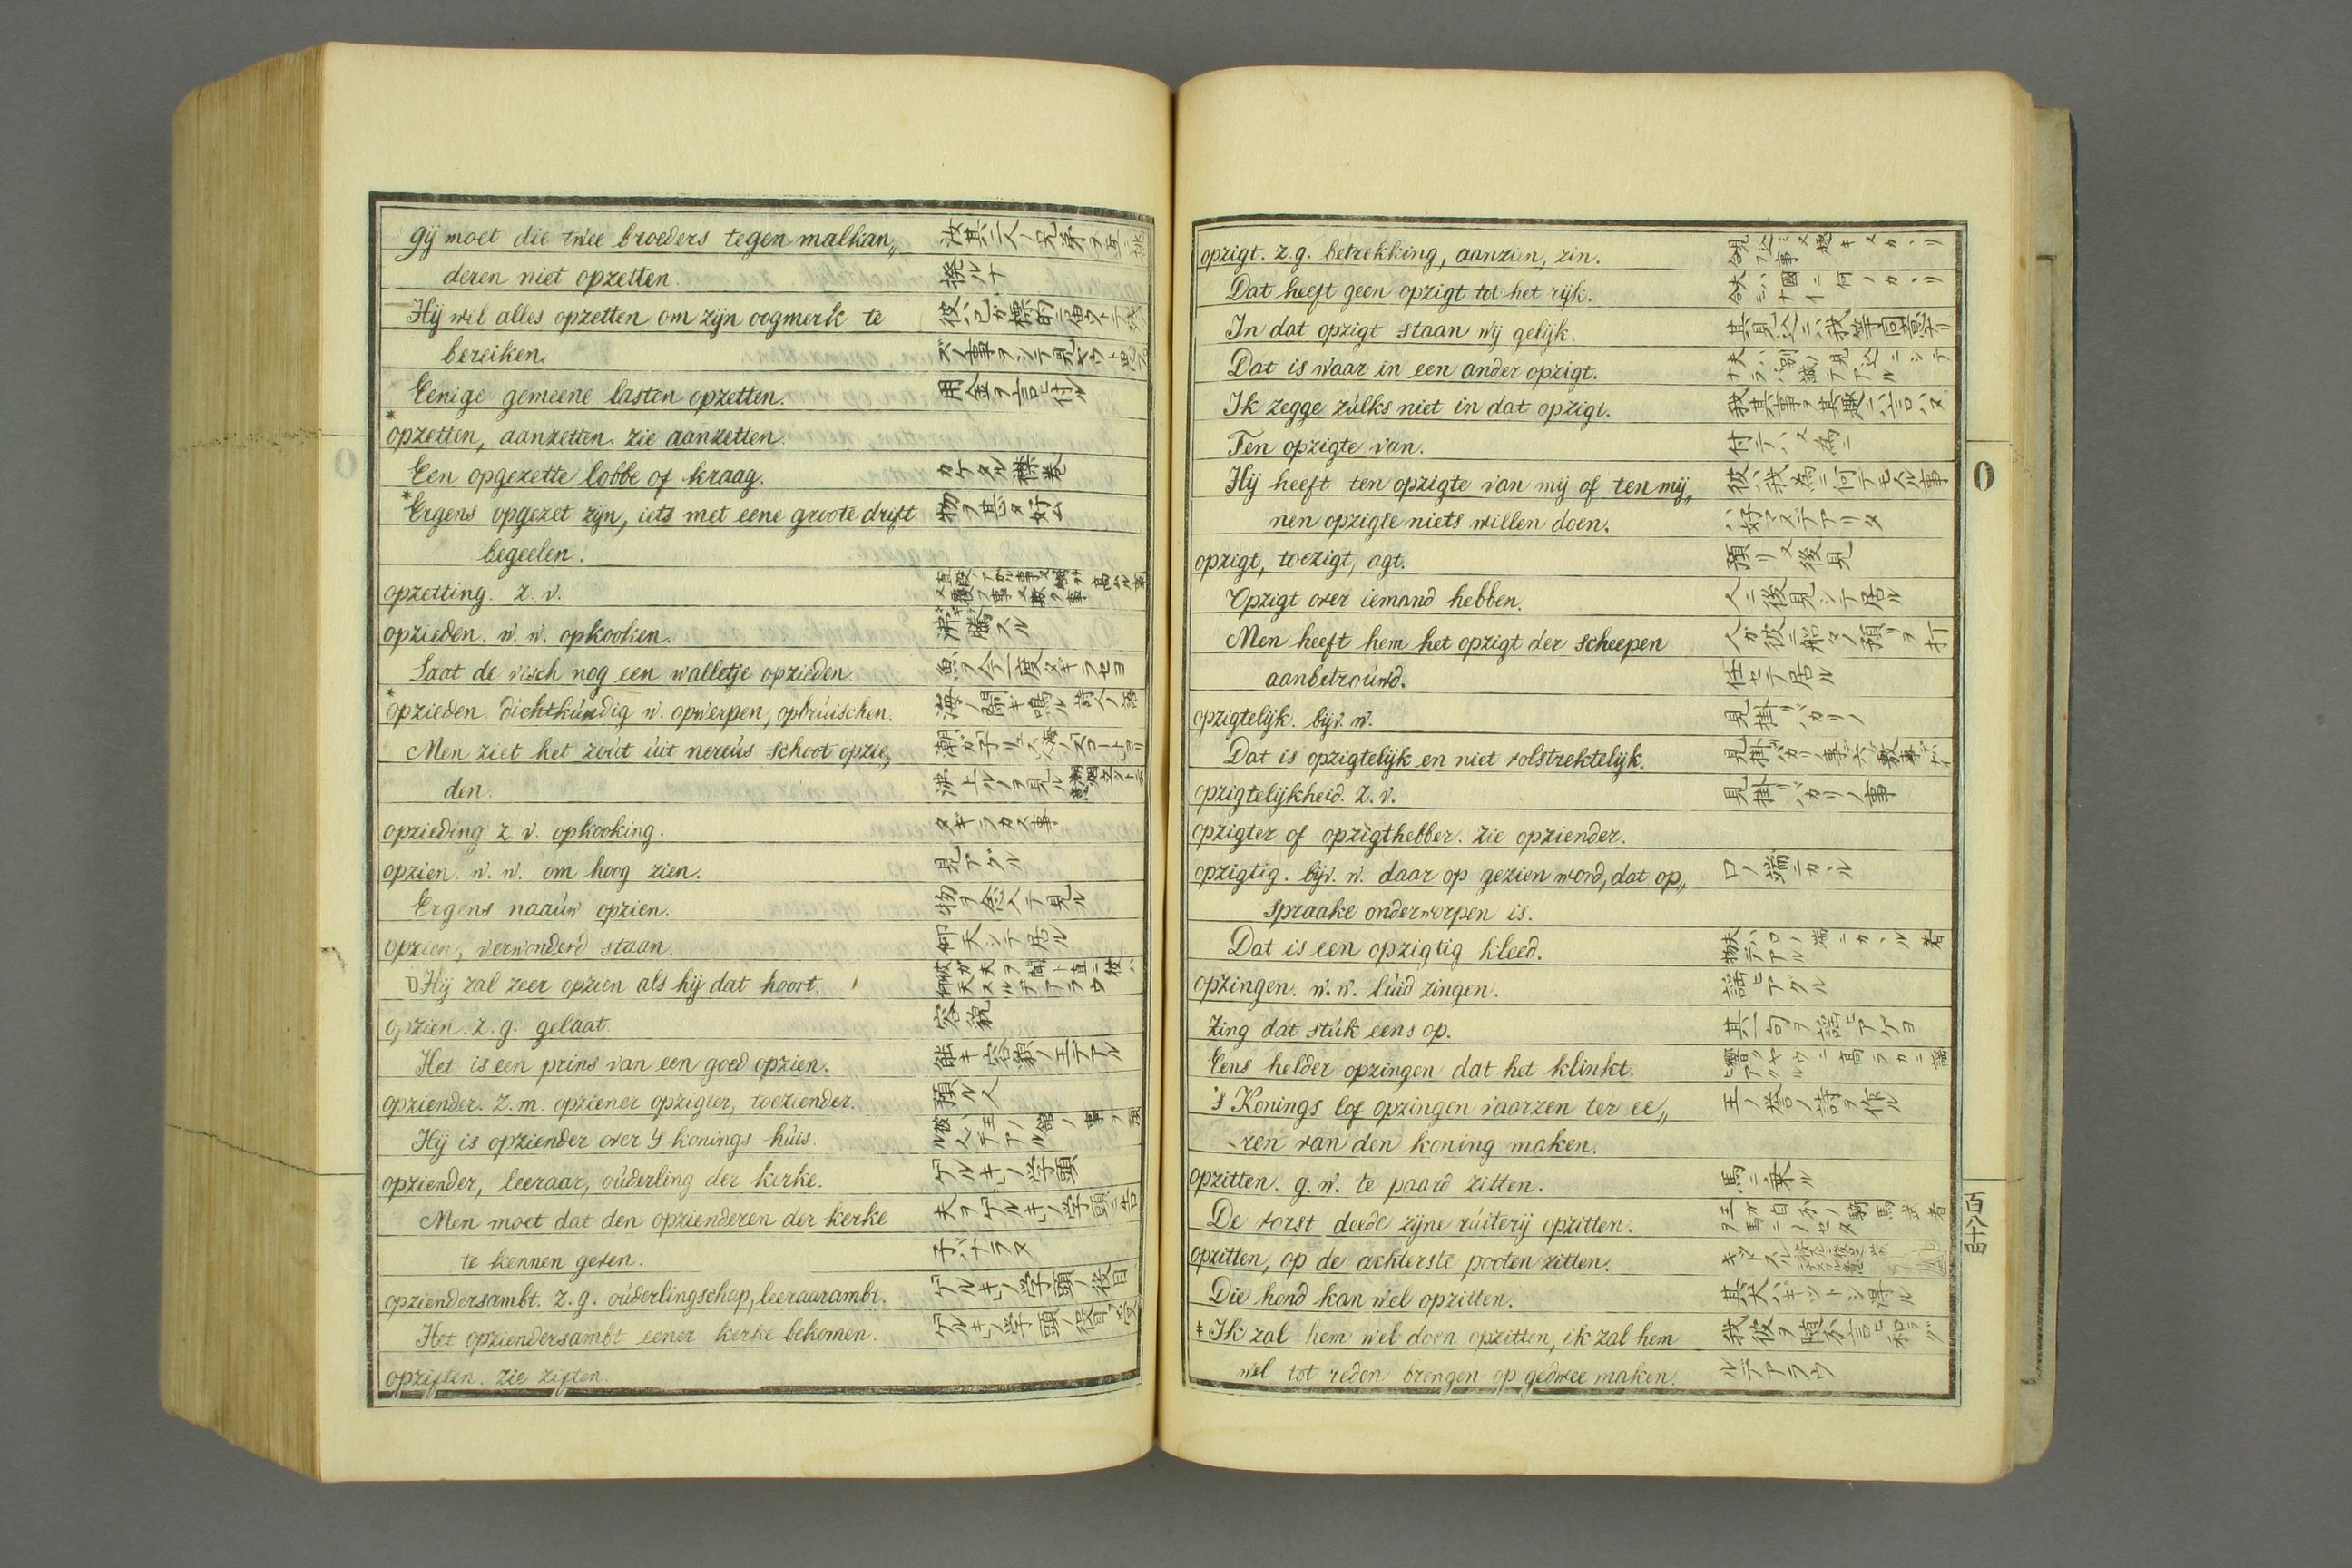 gij moet die twee broeders tegen malkan„ 汝其二人ノ兄弟ヲ互ニ
deren niet opzetten. 撥ルナ
Hij wil alles opzetten om zijn oogmerk te
bereiken.
Eenige gemeene lasten opzetten. 用金ヲ言ヒ付ル
*opzetten, aanzetten. zie aanzetten.
Een opgezette lobbe of kraag. カケタル襟巻
*Ergens opgezet zijn, iets met eene groote drift 物ヲ甚タ好ム
begeelen.
opzetting. z. v.
opzieden. w. w. opkooken. 沸騰スル
Laat de visch nog een walletje opzieden. 魚ヲ今一度タギラセヨ
*opzieden. dichtkúndig w. opwerpen, opbrúischen. 海ノ開キ鳴ル詩人ノ語
Men ziet het zout úit nereús schoot opzie„
den. 沸上ルヲ見ル
opzieding. z. v. opkooking. タギラカス事
opzien. w. w. om hoog zien. 見アグル
Ergens naaúw opzien. 物ヲ念入テ見ル
opzien, verwonderd staan. 仰天シテ居ル
Hij zal zeer opzien als hij dat hoort.
opzien. z. g. gelaat. 容貌
Het is een prins van een goed opzien. 能キ容貌ノ王デアル
opziender. z. m. opziener opzigter, toeziender. 預ル人
Hij is opziender over 's konings húis.
opziender, leeraar, oúderling der kerke. ゲルキノ学頭
Men moet dat den opzienderen der kerke 夫ヲゲルキノ学頭ニ告
te kennen geven. 子バナラヌ
opziendersambt. z. g. oúderlingschap, leeraarambt. ゲルキノ学頭ノ役目
Het opziendersambt eener kerke bekomen. ゲルキノ学頭ノ役目ヲ受
opziften. zie ziften.
opzigt. z. g. betrekking, aanzien, zin.
Dat heeft geen opzigt tot het rijk. 夫ハ國ニ何ノカヽリ合モナイ
In dat opzigt staan wij gelijk. 其見込ニハ我等同意ナリ
Dat is waar in een ander opzigt. 夫ハ別ノ見込ニシテナラハ誠デアル
Ik zegge zúlks niet in dat opzigt. 我其事ヲ其趣ニハ言ハヌ
Ten opzigte van. 付テハ又為ニ
Hij heeft ten opzigte van mij of ten mij„ 彼ハ我為ニ何デモスル事
nen opzigte niets willen doen. ハ好マズデアリタ
opzigt, toezigt, agt. 預リ又後見
Opzigt over iemand hebben. 人ニ後見シテ居ル
Men heeft hem het opzigt der scheepen 人ガ彼ニ船々ノ預リヲ打
aanbetroúwd. 任セテ居ル
opzigtelijk. bijv. w. 見掛バカリノ
Dat is opzigtelijk en niet volstrektelijk.
opzigtelijkheid. z. v. 見掛バカリノ事
opzigter of opzigthebber. zie opziender.
opzigtig. bijv. w. daar op gezien word, dat op„ 口ノ端ニカヽル
spraake onderworpen is.
Dat is een opzigtig kleed. 夫ハ口ノ端ニカヽル着物デアル
opzingen. w. w. lúid zingen. 謡ヒアグル
Zing dat stúk eens op. 其一句ヲ謡ヒアゲヨ
Eens helder opzingen dat het klinkt. 響クヤウニ高ラカニ謡ヒアグル
's Konings lof opzingen vaarzen ter ee„ 王ノ誉ノ詩ヲ作ル
ren van den koning maken.
opzitten. g. w. te paard zitten. 馬ニ乗ル
De vorst deede zijne rúiterij opzitten. 王ガ自分ノ騎馬武者ヲ馬ニノセタ
opzitten, op de achterste pooten zitten.
Die hond kan wel opzitten. 其犬ハキットシ得ル
‡Ik zal hem wel doen opzitten, ik zal hem 我彼ヲ随分言ヒ和ラグ
wel tot reden brengen op gedwee maken. ルデアラウ
O
百八十四